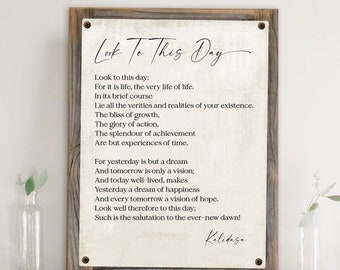 Look To This Day
Look to this day:
For it is life, the very life of life.
In its brief course
Lie all the verities and realities of your existence.
The bliss of growth,
The glory of action,
The splendour of achievement
Are but experiences of time.
For yesterday is but a dream
And tomorrow is only a vision;
And today well-lived, makes
Yesterday a dream of happiness
And every tomorrow a vision of hope.
Look well therefore to this day;
Such is the salutation to the ever-new dawn!
Kalidasa